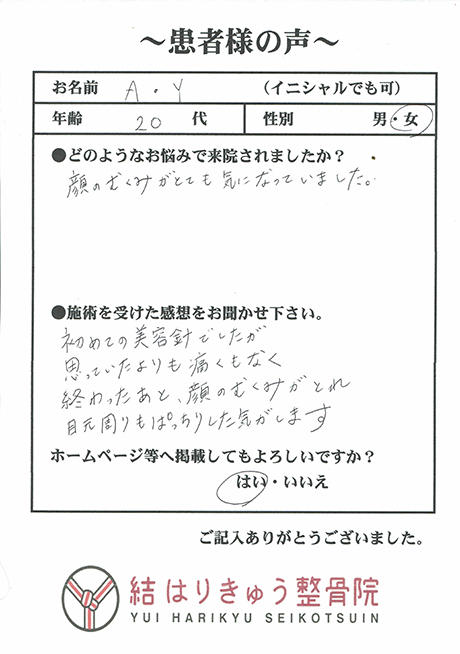 ～患者様の声～
お名前 A・Y （イニシャルでも可）
年齢 20 代 性別 男・女
●どのようなお悩みで来院されましたか？
顔のむくみがとても気になっていました。
●施術を受けた感想をお聞かせ下さい。
初めての美容針でしたが
思っていたよりも痛くもなく
終わったあと、顔のむくみがとれ
目元周りもぱっちりした気がします
ホームページ等へ掲載してもよろしいですか？
はい・いいえ
ご記入ありがとうございました。
結 はりきゅう整骨院
YUI HARIKYU SEIKOTSUIN